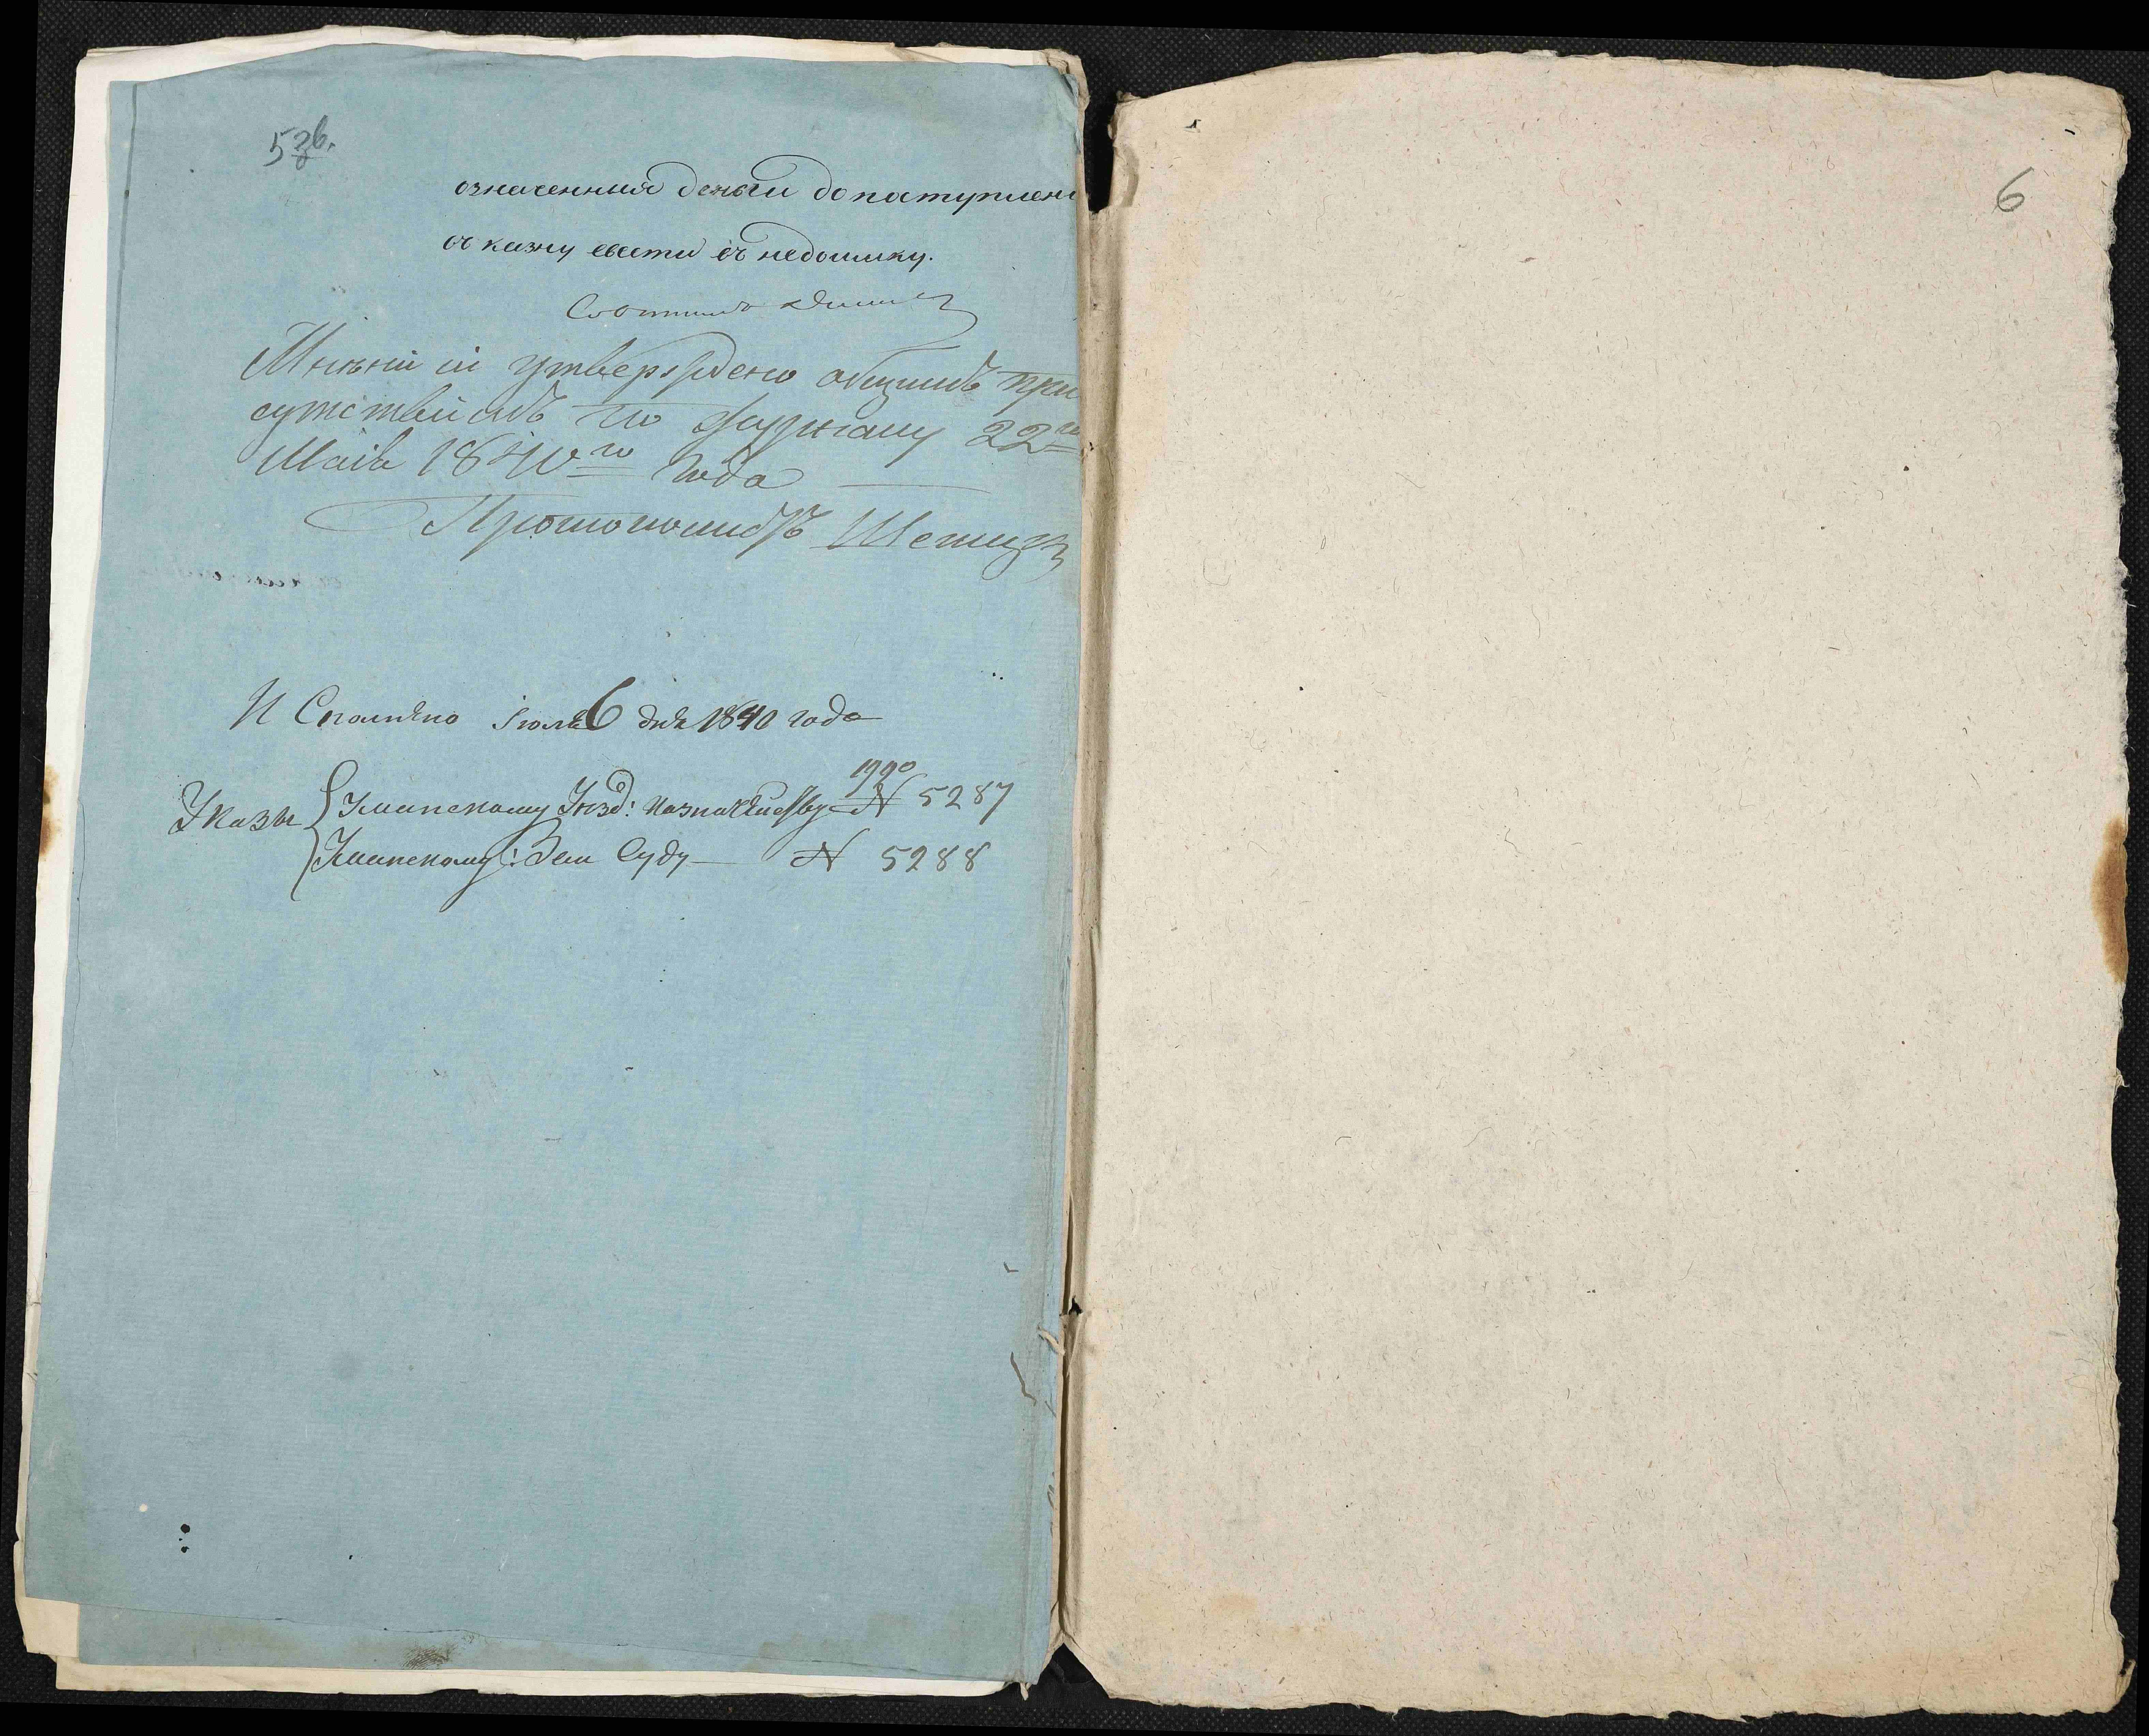 5 зв.
означенныя деньги до поступлені
въ казну ввести въ недоимку.
Мнѣніе сіе утверждено общимъ при
сутствіемъ по журналу 22го
Маія 1840го года
Протоколистъ
И Сполнено Іюля 6 дня 1840 года
1990
Указы Уманскому Уѣзд: Казначейству № 5287
Уманскому: Зем Суду — № 5288
6